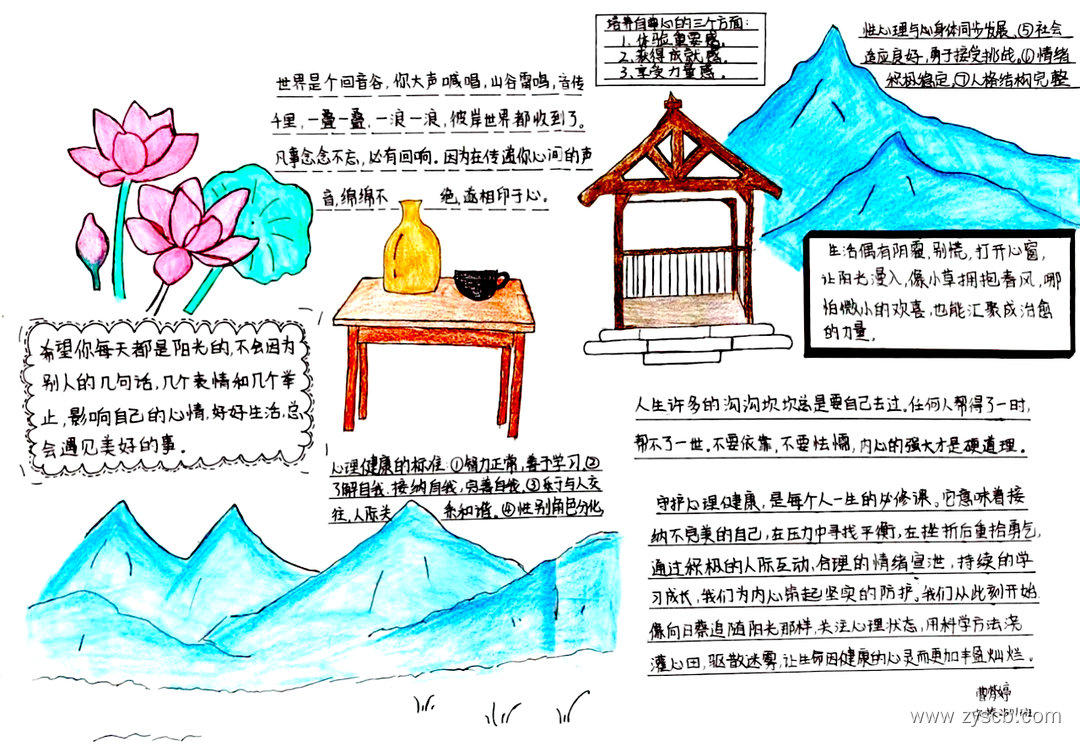 世界是个回音谷，你大声喊唱，山谷雷鸣，音传
千里，一叠一叠，一浪一浪，彼岸世界都收到了。
凡事念念不忘，必有回响。因为在传递你心间的声
音，绵绵不 绝，遥相印于心。
培养自尊心的三个方面：
1、体验重要感。
2、获得成就感。
3、享受力量感。
性心理与心身体同步发展。⑤社会
适应良好，勇于接受挑战。⑥情绪
积极稳定，⑦人格结构完整
生活偶有阴霾，别慌，打开心窗，
让阳光漫入，像小草拥抱春风，哪
怕微小的欢喜，也能汇聚成治愈
的力量。
希望你每天都是阳光的，不会因为
别人的几句话，几个表情和几个举
止，影响自己的心情，好好生活，总
会遇见美好的事。
心理健康的标准：①智力正常，善于学习。②
了解自我，接纳自我，完善自我。③乐于与人交
往，人际关 系和谐。④性别角色分化
人生许多的沟沟坎坎总是要自己去过。任何人帮得了一时，
帮不了一世。不要依靠，不要怯懦，内心的强大才是硬道理。
守护心理健康，是每个人一生的必修课。它意味着接
纳不完美的自己，在压力中寻找平衡，在挫折后重拾勇气，
通过积极的人际互动，合理的情绪宣泄，持续的学
习成长，我们为内心筑起坚实的防护。我们从此刻开始
像向日葵追随阳光那样，关注心理状态，用科学方法浇
灌心田，驱散迷雾，让生命因健康的心灵而更加丰盈灿烂。
www.zyscb.com